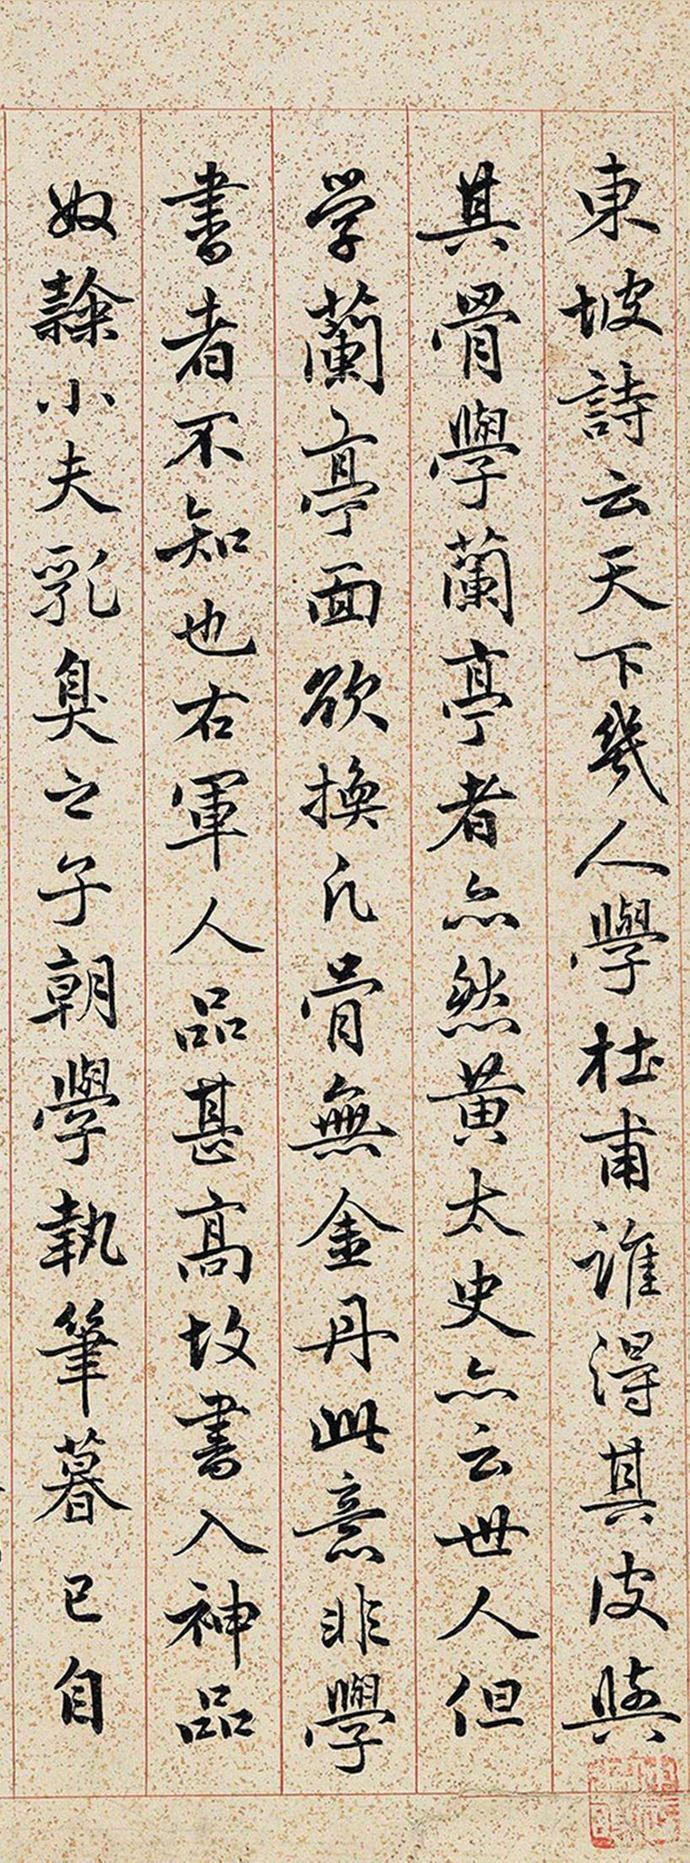 東坡詩云天下幾人學杜甫誰得其皮與
其骨學蘭亭者亦然黄太史亦云世人但
学蘭亭面欲換凡骨無金丹此意非學
書者不知也右軍人品甚高故書入神品
奴隸小夫乳臭之子朝學執筆暮已自